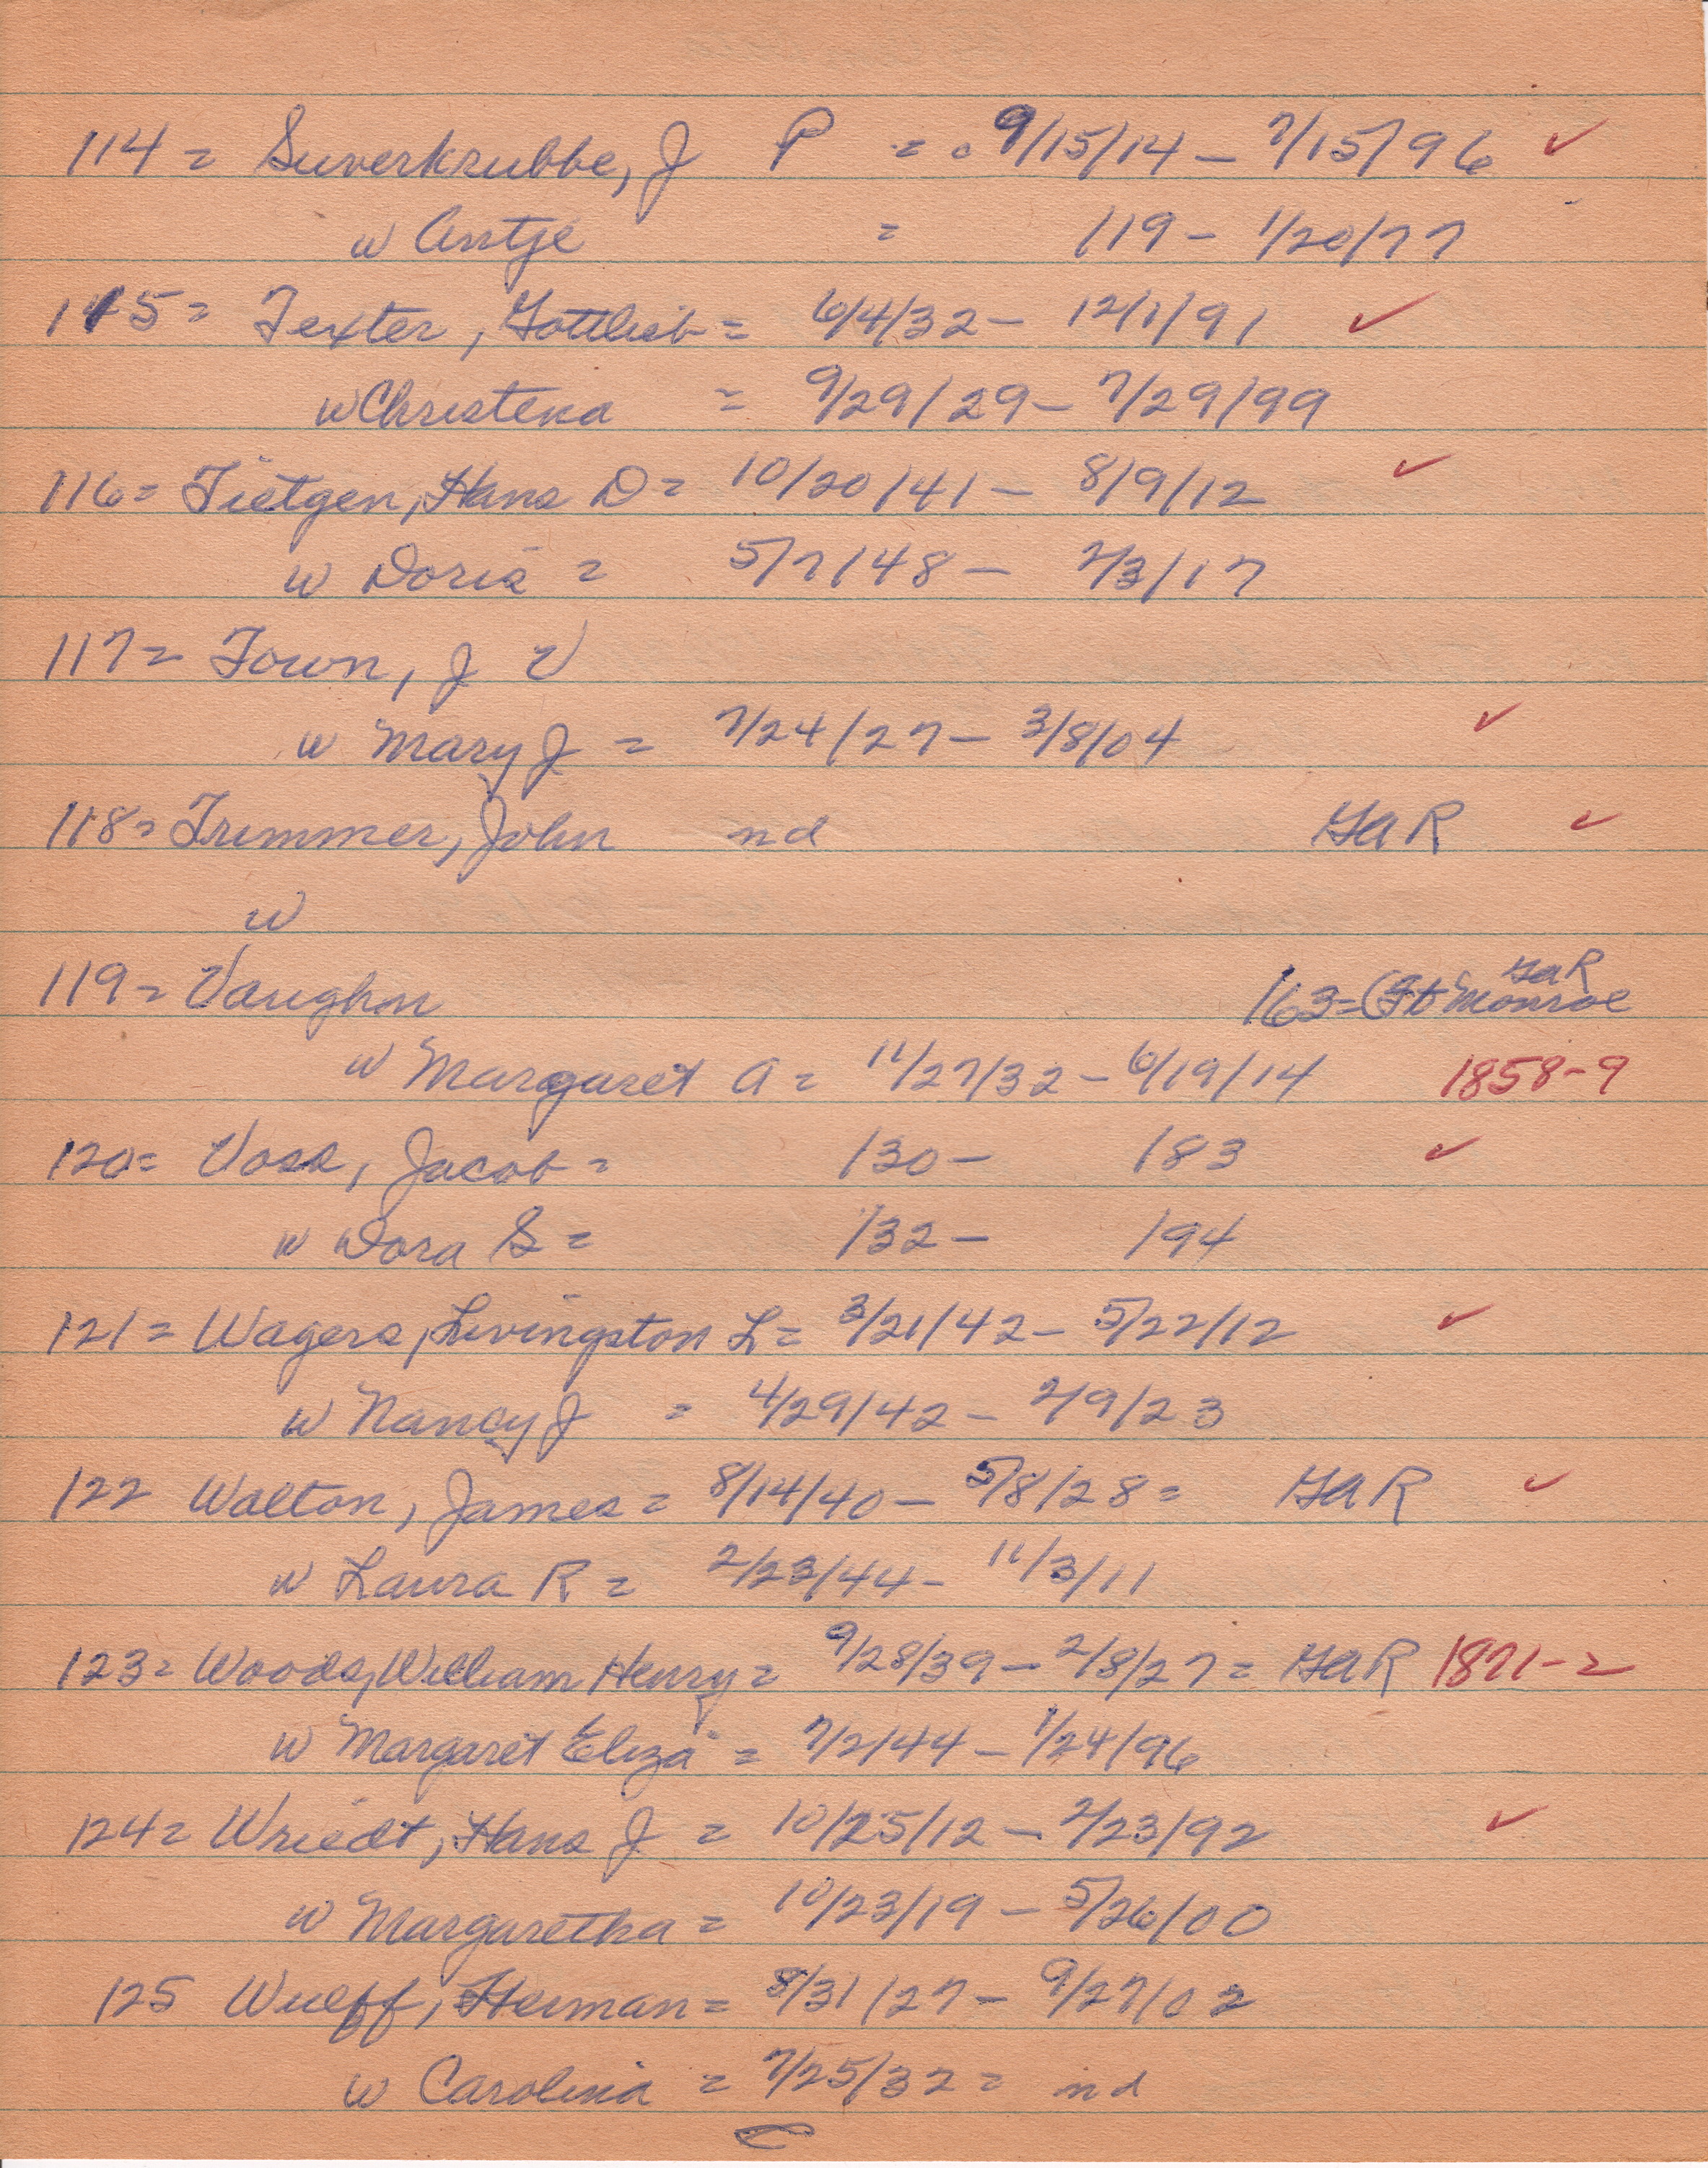 114 = Suverkrubbe, J P = 9/15/14 - 7/15/96 ✓
w Antje = /19 - 1/20/77
115 = Texter, Gottlieb = 6/4/32 - 12/1/91 ✓
w Christena = 9/29/29 - 7/29/99
116 = Tietgen, Hans D = 10/20/41 - 8/9/12 ✓
w Doris = 5/7/48 - 2/3/17
117 = Town, J V
w Mary J = 7/24/27 - 3/8/04 ✓
118 = Trimmer, John nd GAR ✓
w
119 = Vaughn 163 = (Ft Monroe GAR
w Margaret A = 11/27/32 - 6/19/14 1858-9
120 = Voss, Jacob = /30 - /83 ✓
w Dora S = /32 - /94
121 = Wagers, Livingston L = 3/21/42 - 5/22/12 ✓
w Nancy J = 4/29/42 - 2/9/23
122 Walton, James = 8/14/40 - 5/8/28 = GAR ✓
w Laura R = 2/23/44 - 11/3/11
123 = Woods, William Henry = 9/28/39 - 2/8/27 = GAR 1871-2
w Margaret Eliza = 7/2/44 - 1/24/96
124 = Wriedt, Hans J = 10/25/12 - 2/23/92 ✓
w Margaretha = 10/23/19 - 5/26/00
125 Wulff, Herman = 8/31/27 - 9/27/02
w Carolina = 7/25/32 = nd